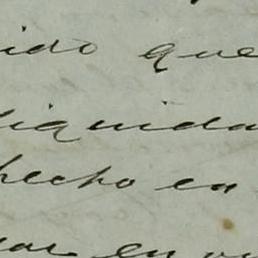 ido que
liquida
hecho en
en